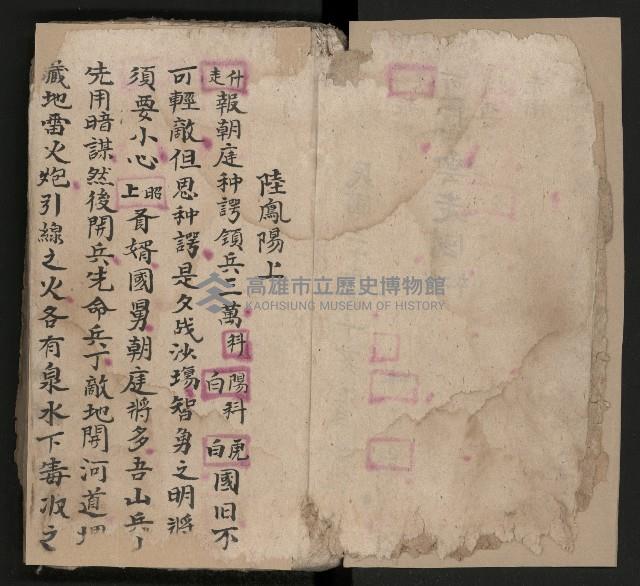 陸鳳陽上
什走報朝庭种諤領兵三萬科陽白科虎白國旧不
可輕敵但思种諤是久战沙塲智勇之明將
須要小心昭上胥婿國舅朝庭將多吾山兵
先用暗謀然後開兵先命兵丁敵地開河道
藏地雷火炮引線之火各有泉水下毒汝之
高雄市立歷史博物館
KAOHSIUNG MUSEUM OF HISTORY